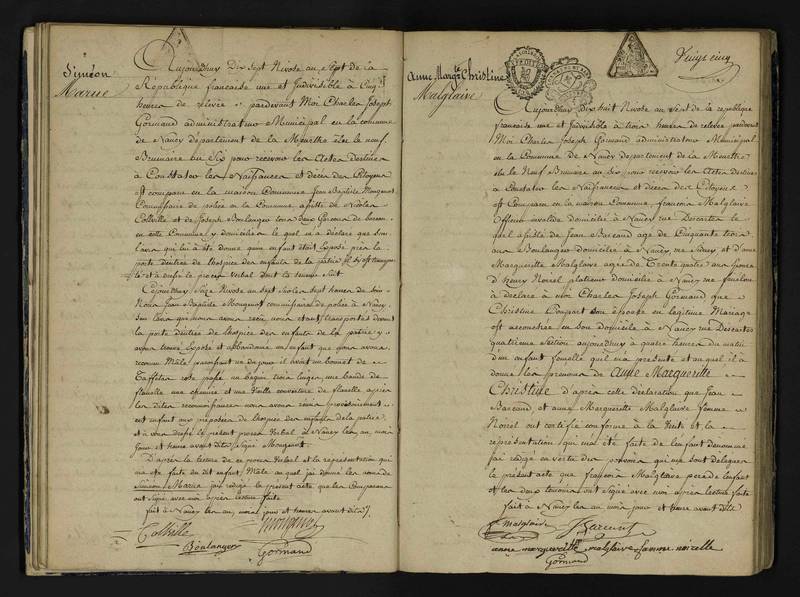 Siméon
Marue
Aujourdhuy Dix sept Nivose an sept de la
République française une et Indivisible à Cinq
heures de relevée, pardevant Moi Charles Joseph
Gormand administrateur Municipal en la commune
de Nancy département de la Meurthe élu le neuf
Brumaire an Six pour recevoir les Actes destinés
à Constater les Naissances et décès des Citoyens
est comparu en la maison Commune Jean Baptiste Mougenot
Commissaire de police en la Commune, assisté de Nicolas
Collville et de Joseph Boulanger tous deux Garçons de bureau
en cette Commune y domiciliés le quel m'a déclaré que sur
lavis qui lui a été donné qu'un enfant était Exposé près la
porte dentrée de lhospice des enfants de la patrie il sy est transporté
et a dressé le procès Verbal dont la teneur suit
Cejourdhuy Seize Nivose an sept sur les sept heures du soir
Nous Jean Baptiste Mougenot commissaire de police à Nancy
sur lavis que nous avons reçu nous étant transportés devant
la porte dentrée de lhospice des enfants de la patrie y
avons trouvé Exposé et abandonné un enfant que nous avons
reconnu Mâle paraissant un jour il avait un bonnet de
Taffetas rose passé un beguin trois langes une bande de
flanelle une chemise et une Vieille couverture de flanelle après
les dites reconnaissances nous avons remis provisoirement
cet enfant aux préposés de lhospice des enfants de la patrie
et avons dressé le présent procès Verbal à Nancy les an, mois
jour et heure avant dits, Signé Mougenot
D'après la lecture de ce procès Verbal et la représentation qui
m'a été faite du dit enfant Mâle au quel j'ai donné les noms de
Siméon Marue jai rédigé le présent acte que les Comparans
ont Signé avec moi après lecture faite
fait à Nancy les an, mois jour et heure avant dits
Collville
Boulanger
Gormand
Vingt cinq
Anne Margte Christine
Malglaire
Aujourdhuy Dix huit Nivose an sept de la republique
française une et Indivisible à trois heures de relevée pardevant
Moi Charles Joseph Gormand administrateur Municipal
en la Commune de Nancy departement de la Meurthe
élu le Neuf Brumaire an Six pour recevoir les Actes destinés
à Constater les Naissances et décès des Citoyens
est Comparu en la maison Commune, francois Malglaire
officier invalide domicilié à Nancy rue Descartes le
quel assisté de Jean Bareaud agé de Cinquante trois
ans Boulanger domicilié à Nancy, rue Sidney et d'anne
Margueritte Malglaire agée de Trente quatre ans femme
d'henry Noirel platineur domicilié à Nancy rue fenelon
a déclaré à moi Charles Joseph Gormand que
Christine Poupart son épouse en legitime Mariage
est accouchée en son domicile à Nancy rue Descartes
quatrieme section aujourdhuy à quatre heures du matin
d'un enfant femelle quil m'a présenté et au quel il a
donné les prenoms de Anne Marguerite
Christine d'après cette déclaration que Jean
Bareaud et anne Marguerite Malglaire femme
Noirel ont certifié conforme à la Verité et la
représentation qui m'a été faite de lenfant denommé
jai rédigé en vertu des pouvoirs qui me sont délégués
le présent acte que françois Malglaire père de lenfant
et les deux témoins ont Signé avec moi après lecture faite
fait à Nancy les an, mois jour et heure avant dits
f. malglaire
anne margueritte malglaire famme noirelle
Gormand